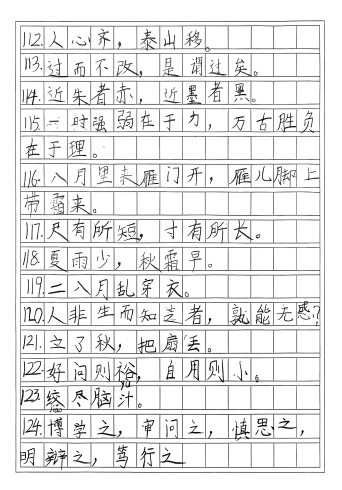 112.人心齐，泰山移。
113.过而不改，是谓过矣。
114.近朱者赤，近墨者黑。
115.一时强弱在于力，万古胜负
在于理。
116.八月里来雁门开，雁儿脚上
带霜来。
117.尺有所短，寸有所长。
118.夏雨少，秋霜早。
119.二八月乱穿衣。
120.人非生而知之者，孰能无惑？
121.立了秋，把扇丢。
122.好问则裕，自用则小。
123.绞尽脑汁。
124.博学之，审问之，慎思之，
明辩之，笃行之